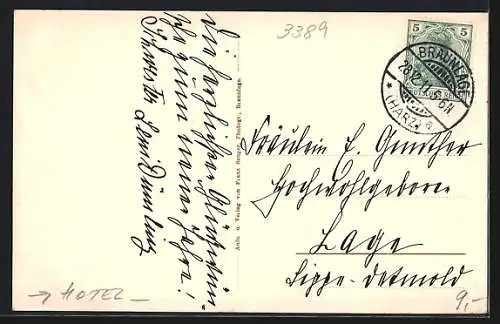 3389
5 5
BRAUNLAGE
28.12.11. 5-6N.
* (HARZ) *
Die herzlichsten Glückwün-
sche zum neuen Jahre!
Aufn. u. Verlag von Franz Photogr., Braunlage.
Fräulein E. Günther
Hochwohlgeboren
Lage
Lippe-Detmold
→ HOTEL –
9,-